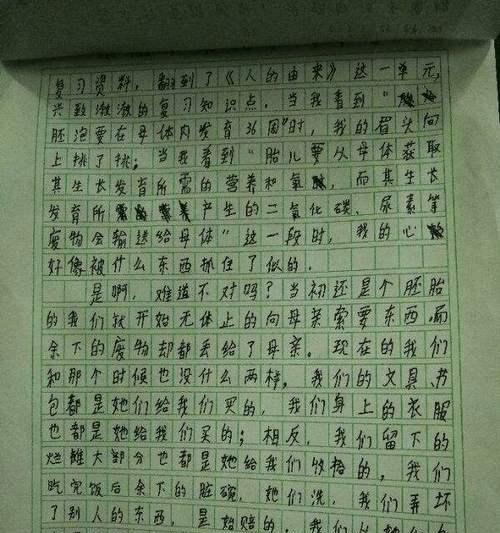 复习资料，翻到了《人的由来》这一单元，
兴致激激的复习知识点。当我看到“
胚泡要在母体内发育36周”时，我的眉头向
上挑了挑；当我看到“胎儿要从母体获取
其生长发育所需的营养和氧，而其生长
发育所产生的二氧化碳、尿素等
废物会输送给母体”这一段时，我的心
好像被什么东西抓住了似的。
是啊，难道不对吗？当初还是个胚胎
的我们就开始无休止的向母亲索要东西，而
余下的废物却都丢给了母亲。现在的我们
和那个时候也没什么两样，我们的文具、书
包都是她们给我们买的，我们身上的衣服
也都是她给我们买的；相反，我们留下的
烂摊大部分也都是她给我们收拾的，我们
吃完饭后余下的脏碗，她们洗，我们弄坏
了别人的东西，是她赔的，我们